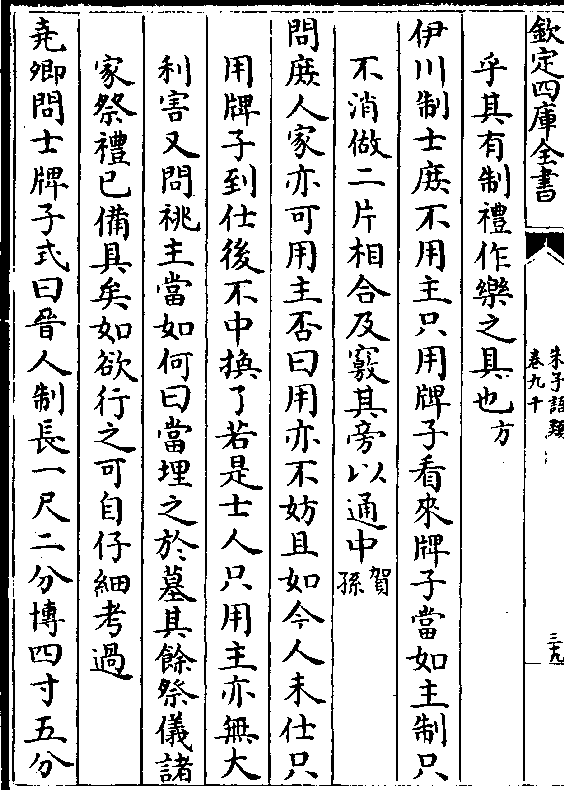 欽定四庫全書
朱子語類
卷九十
三九
乎其有制禮作樂之具也方
伊川制士庶不用主只用牌子看來牌子當如主制只
不消做二片相合及竅其旁以通中賀孫
問庶人家亦可用主否曰用亦不妨且如今人未仕只
用牌子到仕後不中換了若是士人只用主亦無大
利害又問祧主當如何曰當埋之於墓其餘祭儀諸
家祭禮已備具矣如欲行之可自仔細考過
堯卿問士牌子式曰晉人制長一尺二分博四寸五分